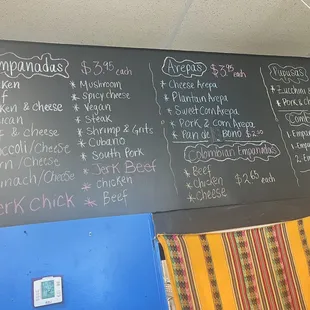 mpanadas $3.95 each
ken
f
ken & cheese
ican
s & cheese
occoli/cheese
rn/cheese
inach/cheese
erk chick
* Mushroom
* Spicy cheese
* Vegan
* Steak
* Shrimp & Grits
* Cubano
* South Pork
* Jerk Beef
* chicken
* Beef
Arepas $3.95 each
* Cheese Arepa
* Plantain Arepa
* Sweet Corn Arepa
* Pork & corn Arepa
* Pan de Bono $2.50
Colombian Empanadas
* Beef
* Chicken $2.65 each
* Cheese
Pupusas
* Zucchini &
* Pork & ch
Comb
1. Empa
2. Empa
3. Emp